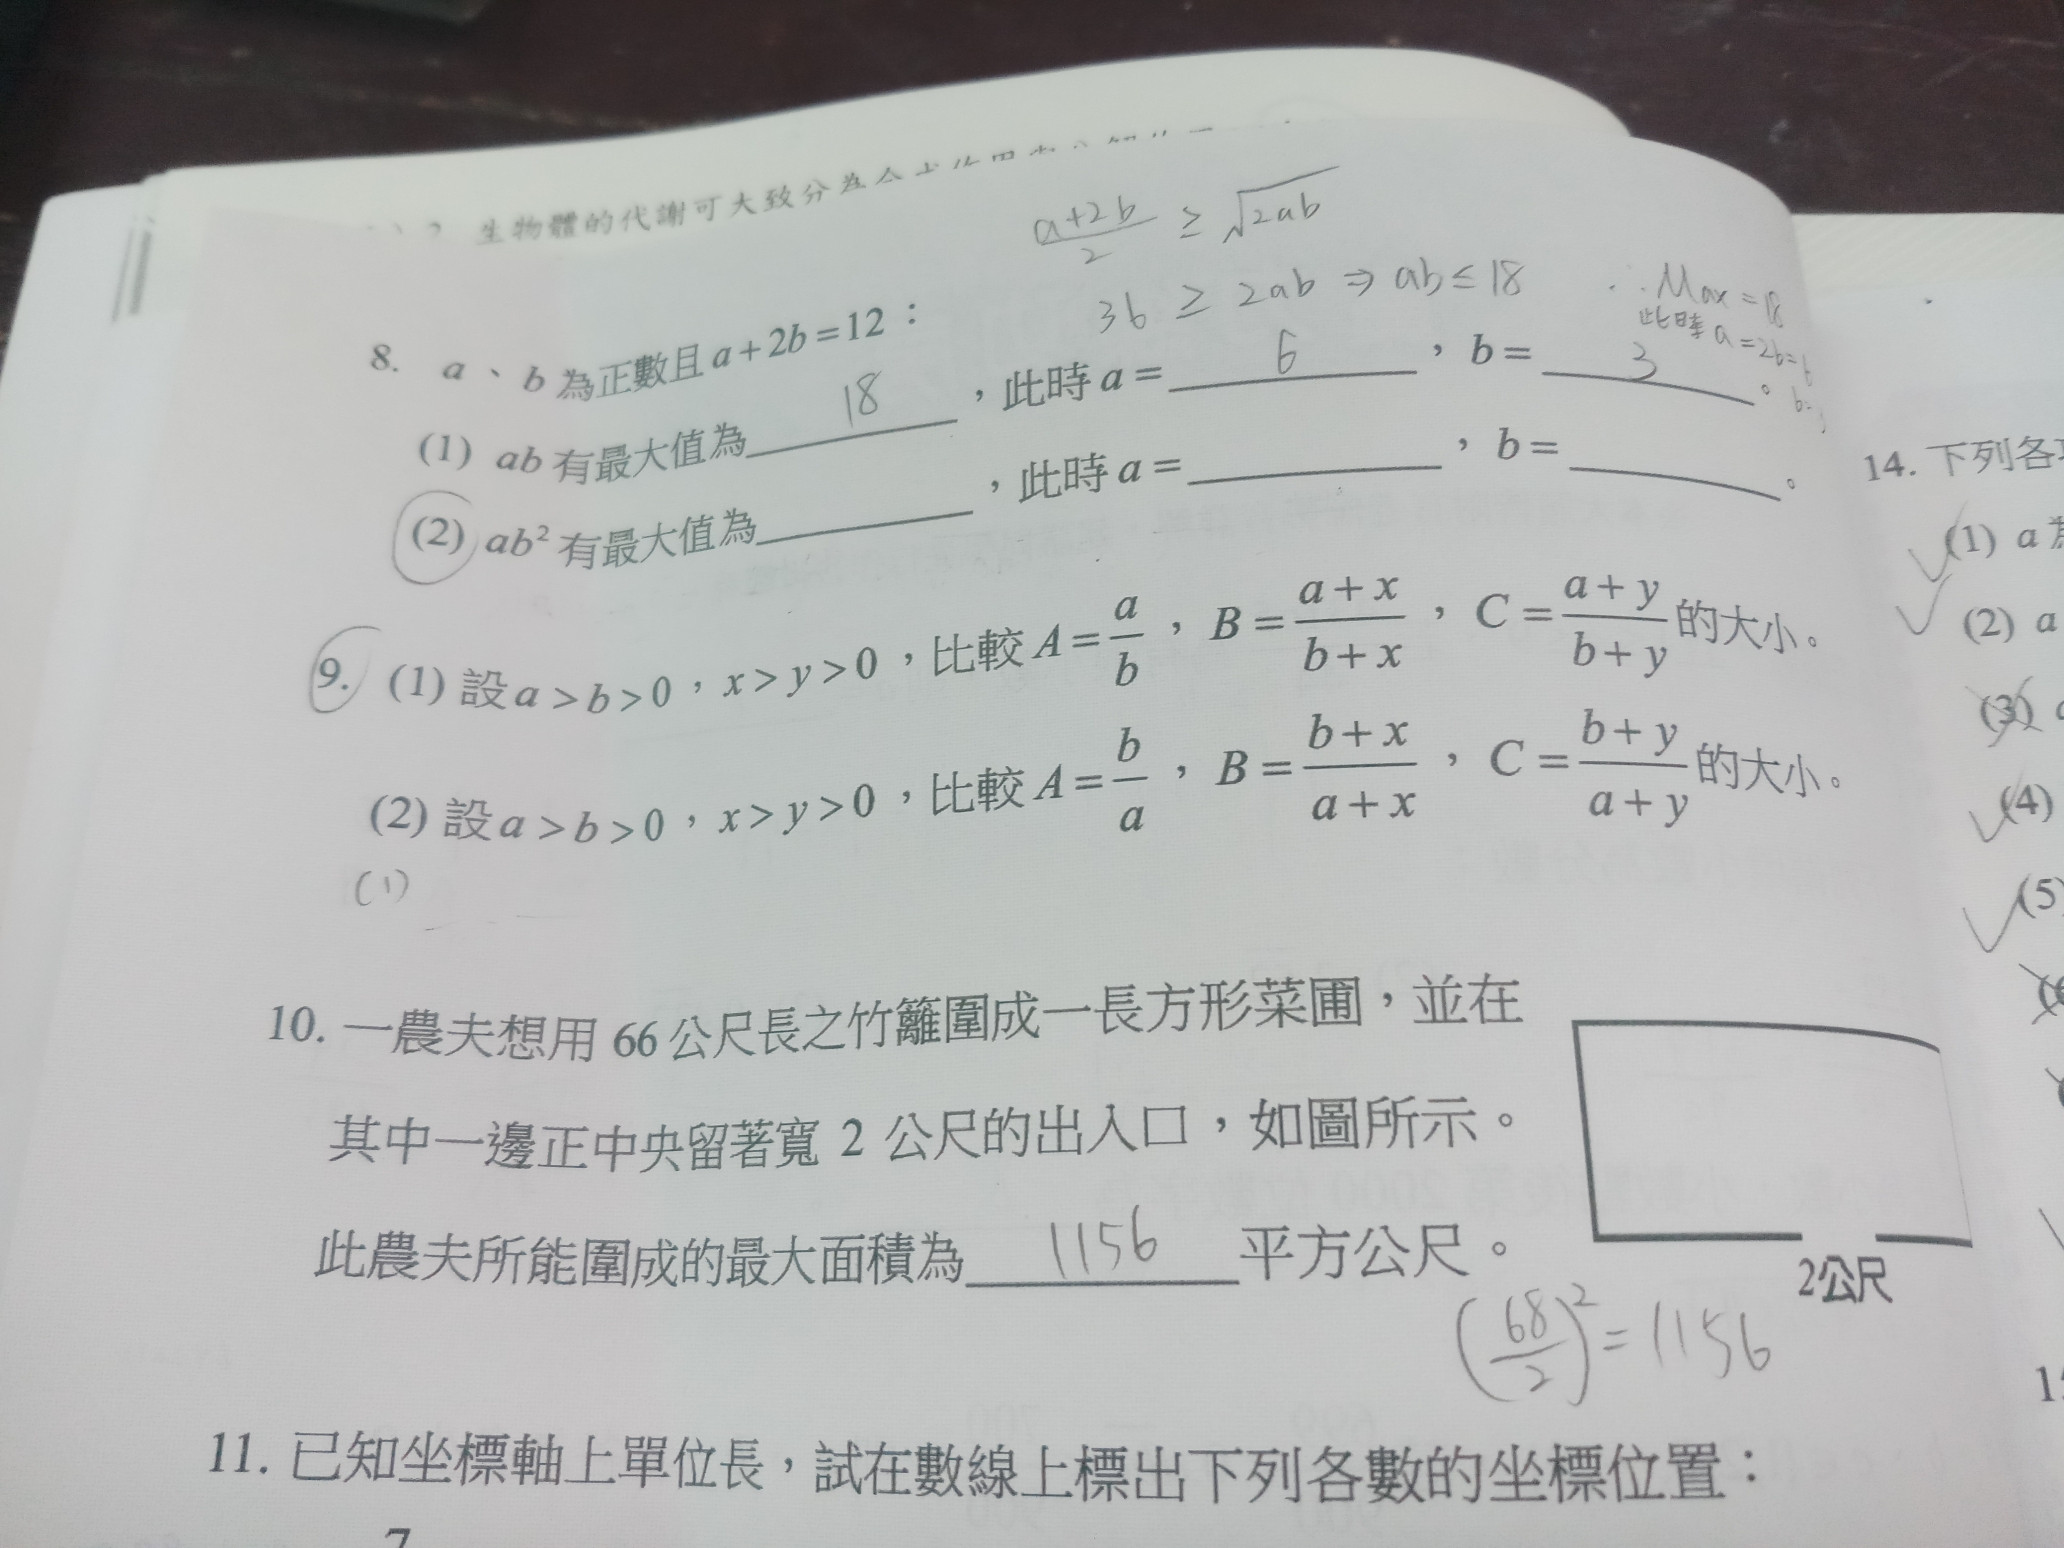 生物體的代謝可大致分為
a+2b/2 ≥ √2ab
36 ≥ 2ab ⇒ ab ≤ 18 ∴ Max = 18
此時 a = 2b = 6
8. a、b 為正數且 a+2b=12:
(1) ab 有最大值為 18 ,此時 a = 6 ,b = 3 。
(2) ab² 有最大值為 ,此時 a = ,b = 。
9. (1) 設 a>b>0,x>y>0,比較 A=a/b,B=(a+x)/(b+x),C=(a+y)/(b+y) 的大小。
(2) 設 a>b>0,x>y>0,比較 A=b/a,B=(b+x)/(a+x),C=(b+y)/(a+y) 的大小。
(1)
10. 一農夫想用 66 公尺長之竹籬圍成一長方形菜圃,並在
其中一邊正中央留著寬 2 公尺的出入口,如圖所示。
此農夫所能圍成的最大面積為 1156 平方公尺。
2公尺
(68/2)² = 1156
11. 已知坐標軸上單位長,試在數線上標出下列各數的坐標位置:
7
14. 下列各
(1) a
(2) a
(3)
(4)
(5)